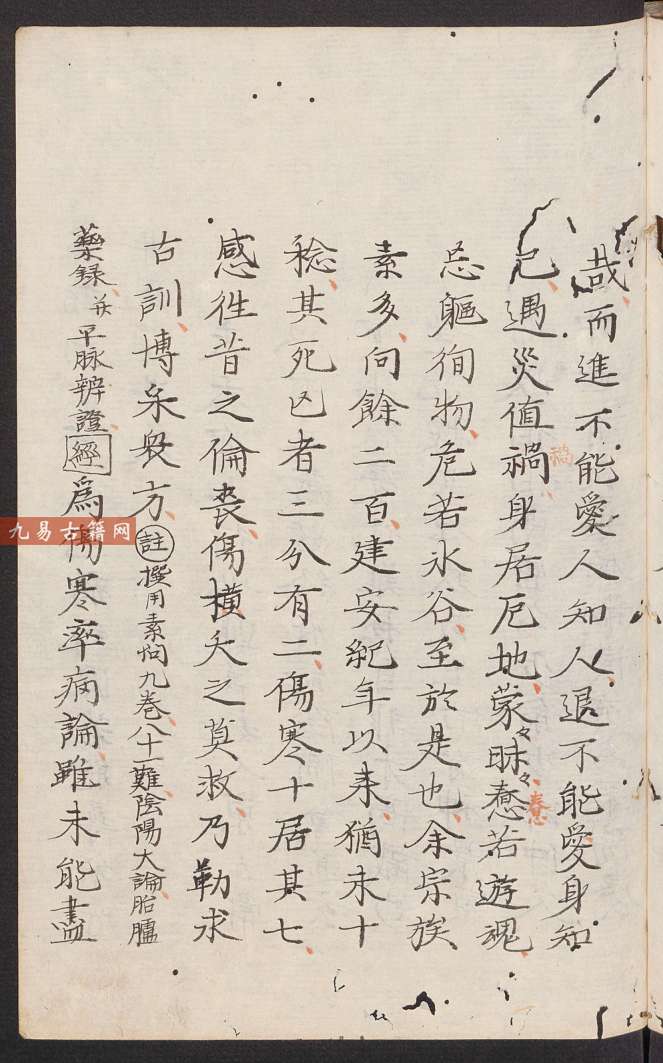 哉而進不能愛人知人退不能愛身知
己遇災值禍身居厄地蒙々昧々惷若遊魂
禍
惷
忘軀徇物危若氷谷至於是也余宗族
素多向餘二百建安紀年以来猶未十
稔其死亡者三分有二傷寒十居其七
感徃昔之倫喪傷橫夭之莫救乃勤求
古訓博采衆方註撰用素問九卷八十一難陰陽大論胎臚
藥録并平脉辨證經爲傷寒卒病論雖未能盡
九易古籍网